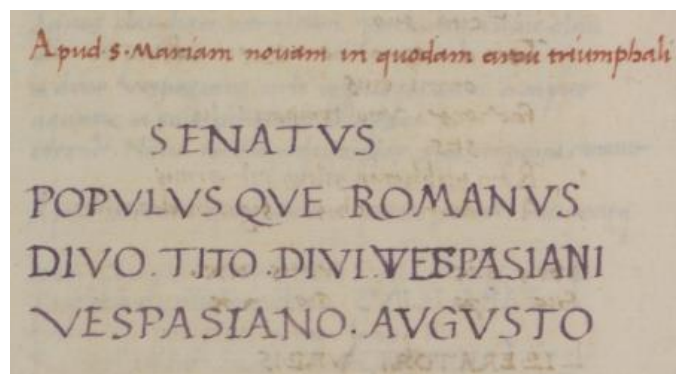 Apud S. Mariam novam in quodam arcu triumphali
SENATVS
POPVLVS QVE ROMANVS
DIVO. TITO. DIVI. VESPASIANI
VESPASIANO. AVGVSTO